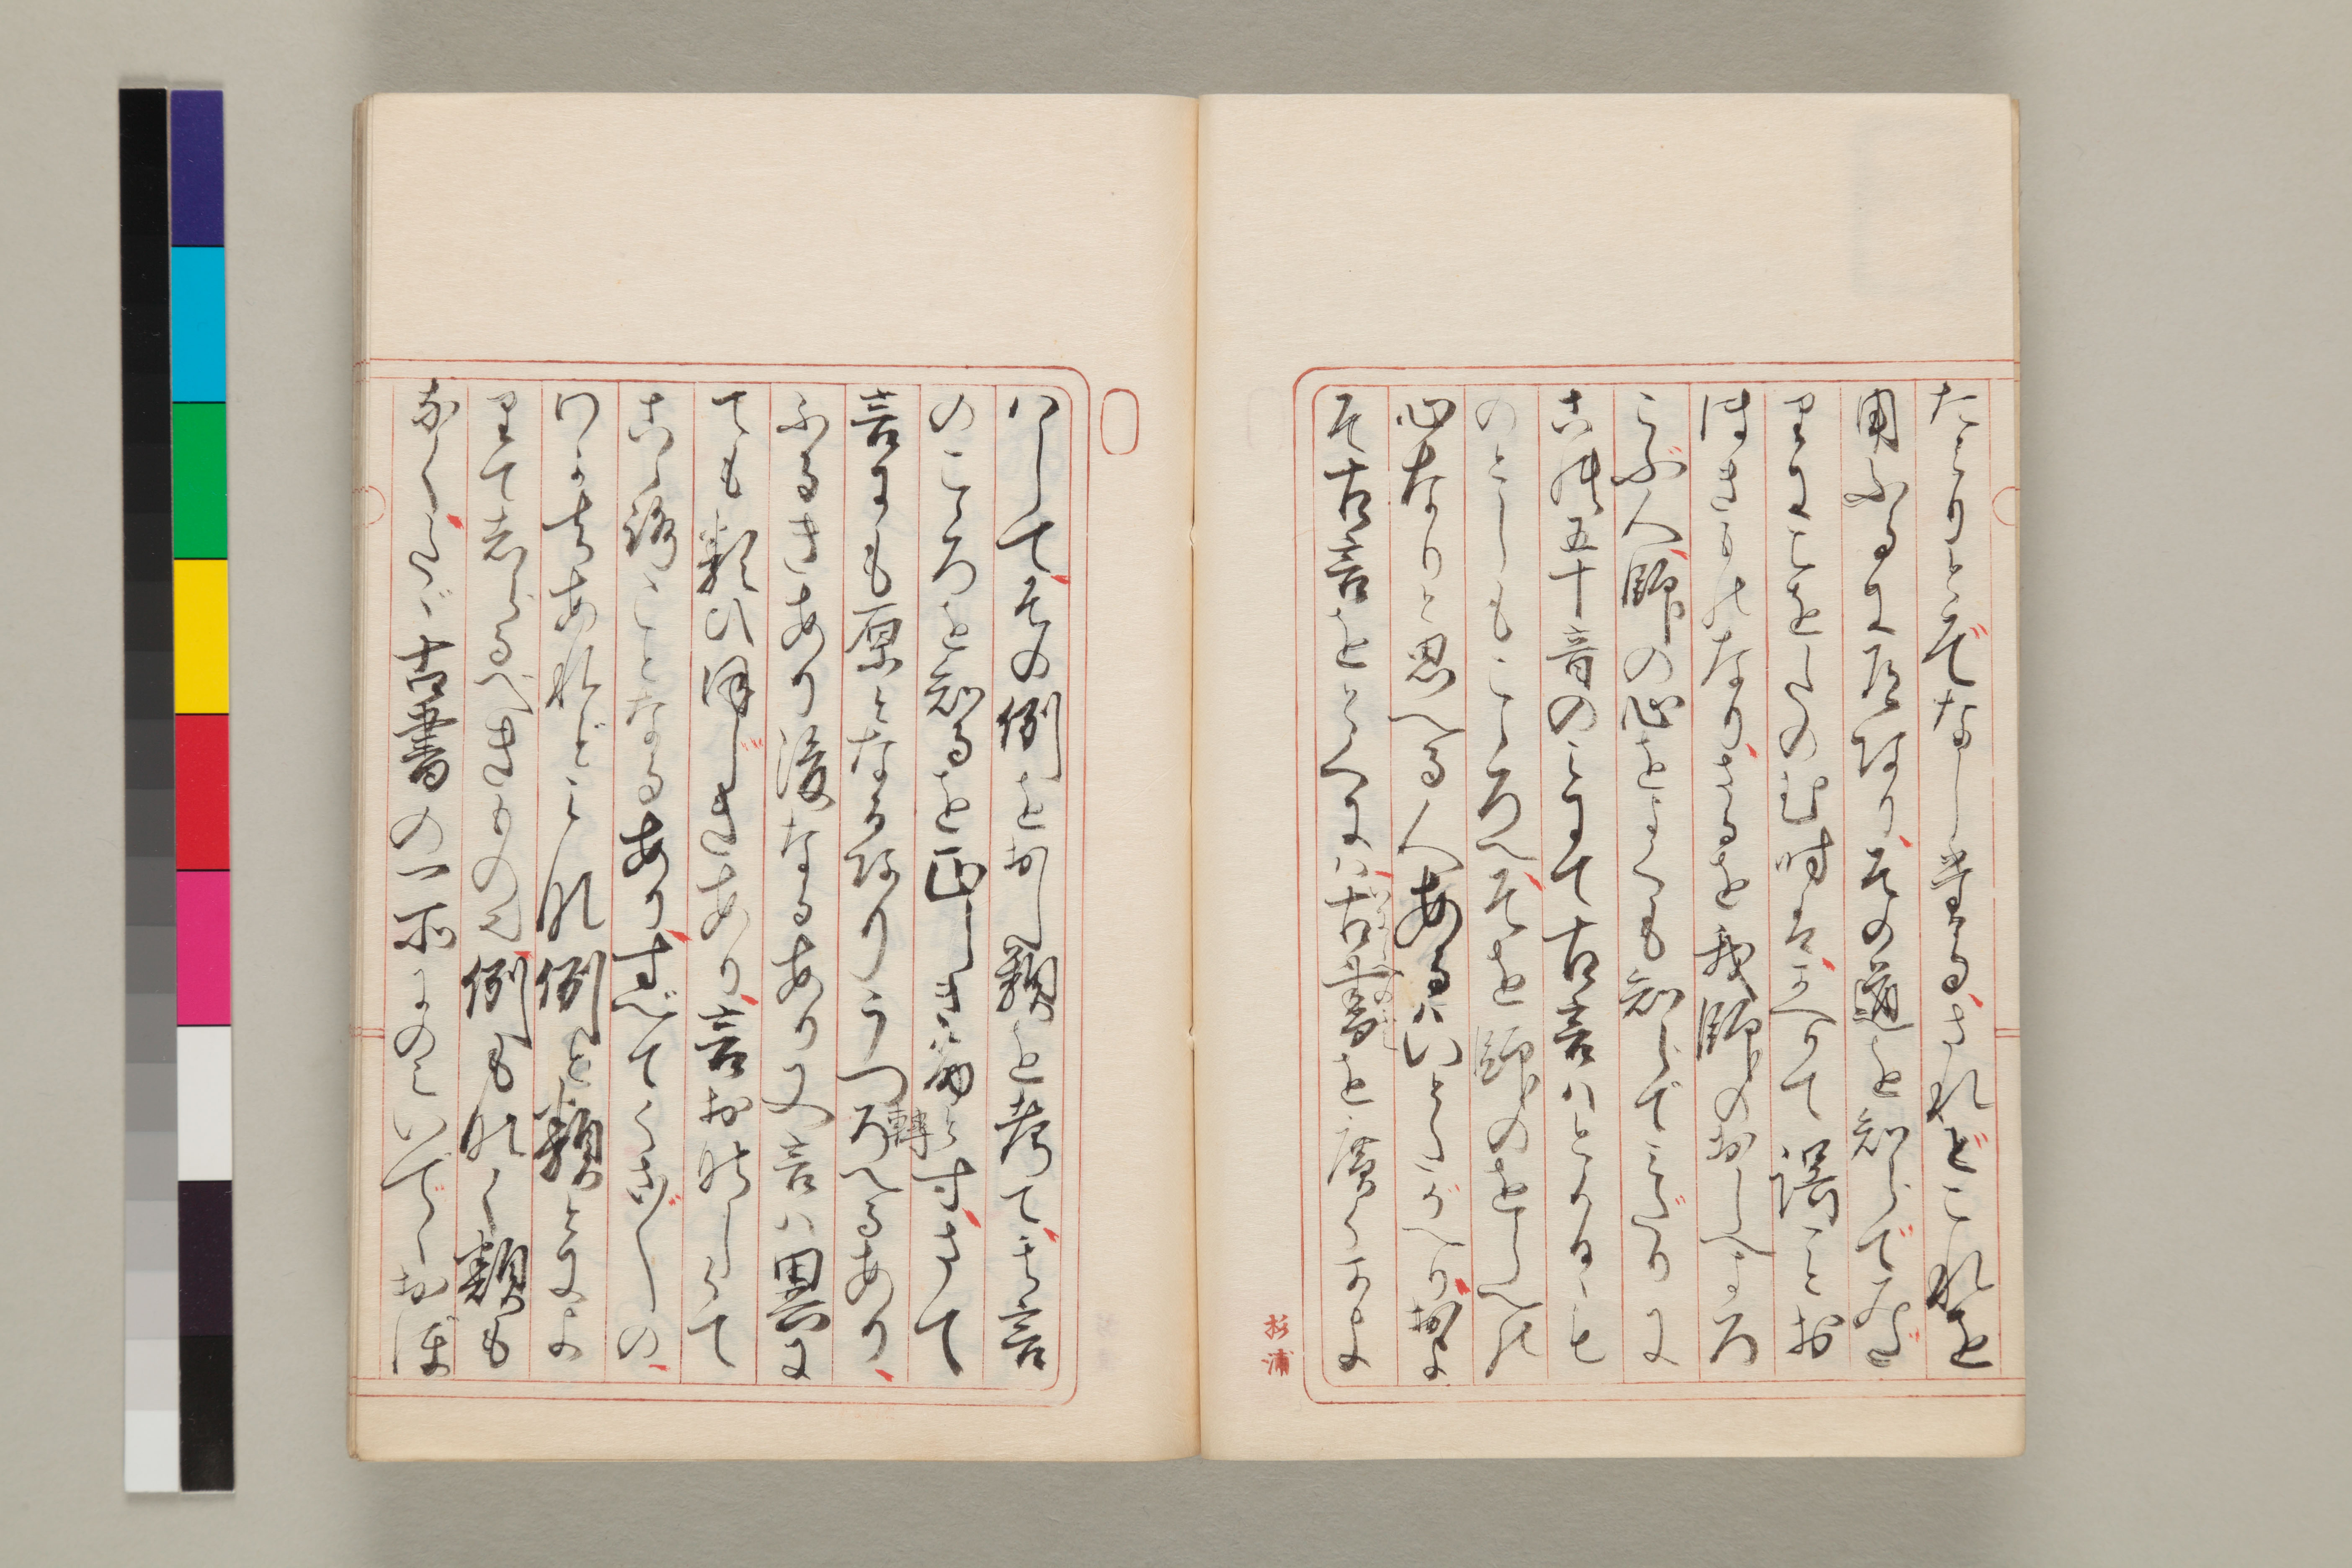 たよりとぞなし□まる、されどこれを
用ふるに道あり、その道を知らでみだ
りにことをしの□□は、かへりて誤ことお
ほきものなり、さるを我師のおしへよろ
こぶ人、師の心をよくも知らでみだりに
古言五十音のみにて古言はとかるゝも
のとしもこゝろへ、そを師のをしへの
心なりと思へる人あるはいとたがへり、惣
そ古言をとくには、古書を廣くよみ
はして、その例をおし類を考て、其言
のこゝろを知るを正しきわざとす、さて
言にも原となるありうつ轉ろへるあり、
ふるきあり後なるあり又言は異に
ても類ひ同じきあり、言おなじくて
こゝろ□ことなるあり、すべてくさ〲の
わかちあれどこれ例と類とによ
りてしらるべきもの也、例もなく類も
なくして、古書の一所にのみいでゝおぼ
杉浦